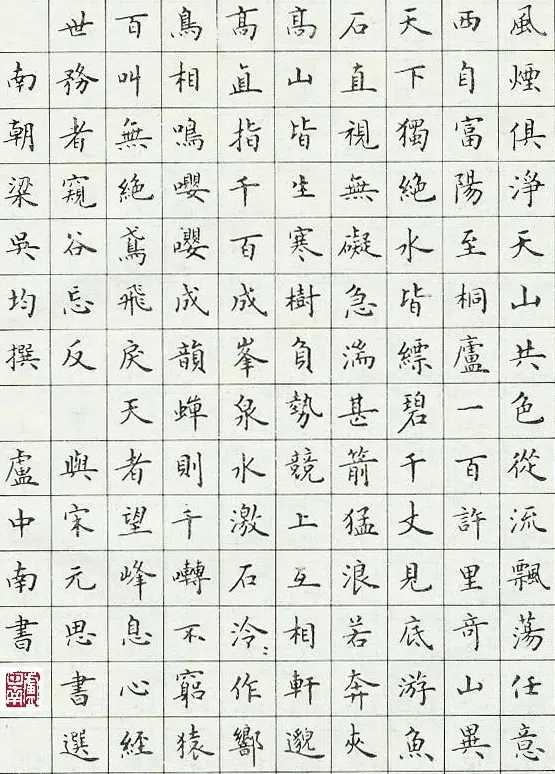 風煙俱淨天山共色從流飄蕩任意
西自富陽至桐廬一百許里奇山異
天下獨絶水皆縹碧千丈見底游魚
石直視無礙急湍甚箭猛浪若奔夾
高山皆生寒樹負勢競上互相軒邈
高直指千百成峯泉水激石泠〻作響
鳥相鳴嚶嚶成韻蟬則千囀不窮猿
百叫無絶鳶飛戾天者望峰息心經
世務者窺谷忘反 與宋元思書選
南朝梁吳均撰 盧中南書